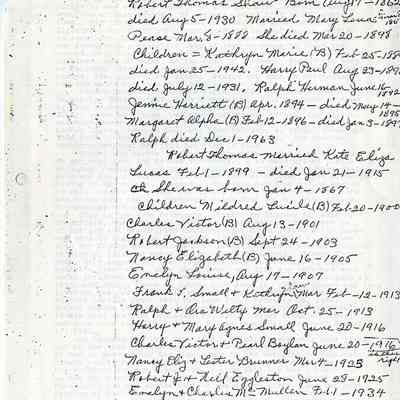 Robert Thomas Shaw Born Aug 17 - 1862
died Aug 5 - 1930 Married Mary Luna
Pease Mar. 8 - 1888 She died Mar 20 - 1898
Children = Kathryn Marie (B) Feb 25 - 188
died Jan 25 - 1942. Harry Paul Aug 23 - 189
died July 12 - 1931. Ralph Herman June 16 1892
Jennie Harriett (B) Apr. 1894 - died May 14 - 1895
Margaret Alpha (B) Feb 12 - 1896 - died Jan 3 - 189
Ralph died Dec 1 - 1963
Robert Thomas Married Kate Eliza
Lucas Feb 1 - 1899 - died Jan 21 - 1915
She was born Jan 4 - 1867
Children Mildred Lucile (B) Feb 20 - 1900
Charles Victor (B) Aug 13 - 1901
Robert Jackson (B) Sept 24 - 1903
Nancy Elizabeth (B) June 16 - 1905
Emelyn Louise, Aug 17 - 1907
Frank T. Small + Kathryn Mar Feb - 12 - 1913
Ralph + Ora Welty Mar Oct 25 - 1913
Harry + Mary Agnes Small June 20 - 1916
Charles Victor + Pearl Boylan June 20 - 1916
is this right
Nancy Eliz + Lester Brunner Mar 4 - 1925
Robert J. + Neil Eggleston June 29 - 1925
Emelyn + Charles McMullen Feb 1 - 1934